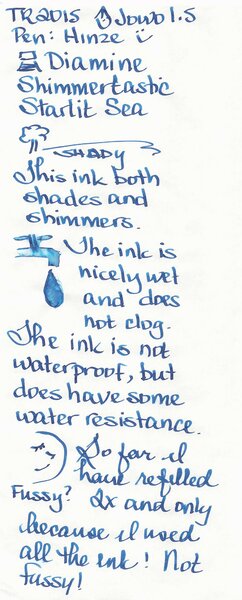 TRAVIS Jowo 1.5
Pen: Hinze
Diamine
Shimmertastic
Starlit Sea
SHADY
This ink both
shades and
shimmers.
The ink is
nicely wet
and does
not clog.
The ink is not
waterproof, but
does have some
water resistance.
So far I
have refilled
Fussy? 2x and only
because I used
all the ink! Not
fussy!